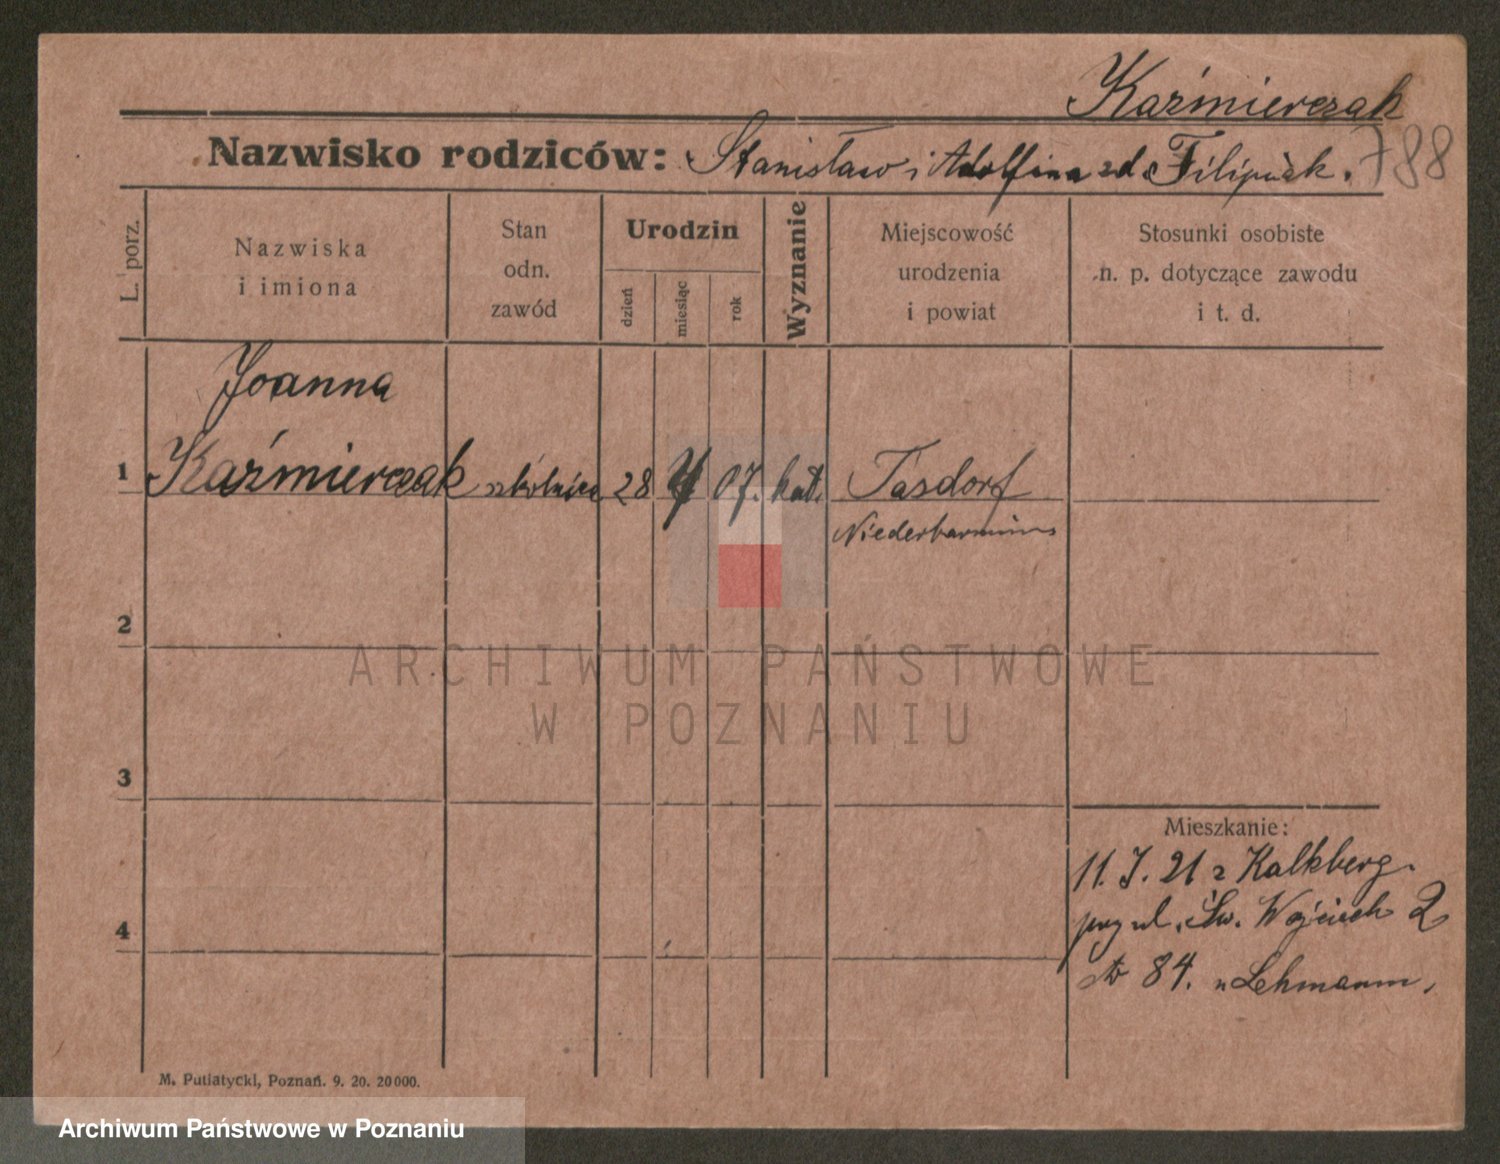 Kaźmierczak
Nazwisko rodziców: Stanisław i Adolfina zd. Filipiak.
788
L. porz.
Nazwiska
i imiona
Stan
odn.
zawód
Urodzin
dzień
miesiąc
rok
Wyznanie
Miejscowość
urodzenia
i powiat
Stosunki osobiste
n. p. dotyczące zawodu
i t. d.
Joanna
1 Kaźmierczak 28 4 07. kat. Tasdorf
Niederbarnim
2
3
4
Mieszkanie:
11. I. 21 z Kalkberg
przy ul. Św. Wojciech 2
84. u Lehmann,
M. Putiatycki, Poznań. 9. 20. 20000.
ARCHIWUM PAŃSTWOWE
W POZNANIU
Archiwum Państwowe w Poznaniu